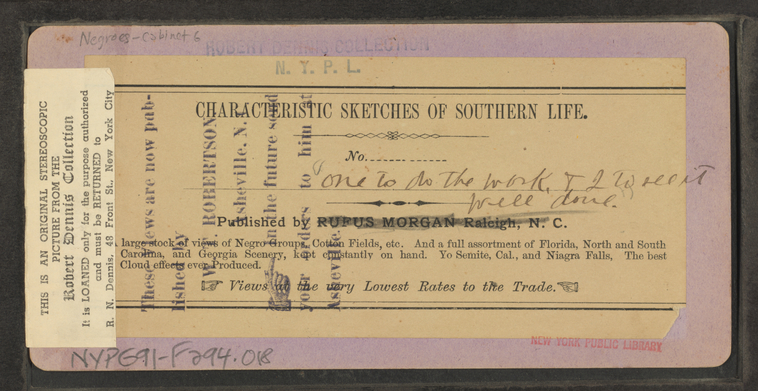 Negroes - Cabinet 6
ROBERT DENNIS COLLECTION
N. Y. P. L.
THIS IS AN ORIGINAL STEREOSCOPIC
PICTURE FROM THE
Robert Dennis Collection
It is LOANED only for the purpose authorized
and must be RETURNED to
R. N. Dennis, 48 Front St., New York City
These views are now pub-
lished by
W. T. ROBERTSON
Asheville, N. C.
In the future send
your orders to him at
Asheville.
CHARACTERISTIC SKETCHES OF SOUTHERN LIFE.
No.
one to do the work, & 2 to see it
well done.
Published by RUFUS MORGAN Raleigh, N. C.
A large stock of views of Negro Groups, Cotton Fields, etc. And a full assortment of Florida, North and South
Carolina, and Georgia Scenery, kept constantly on hand. Yo Semite, Cal., and Niagra Falls, The best
Cloud effects ever Produced.
Views at the very Lowest Rates to the Trade.
NEW YORK PUBLIC LIBRARY
NYPG91-F294.018